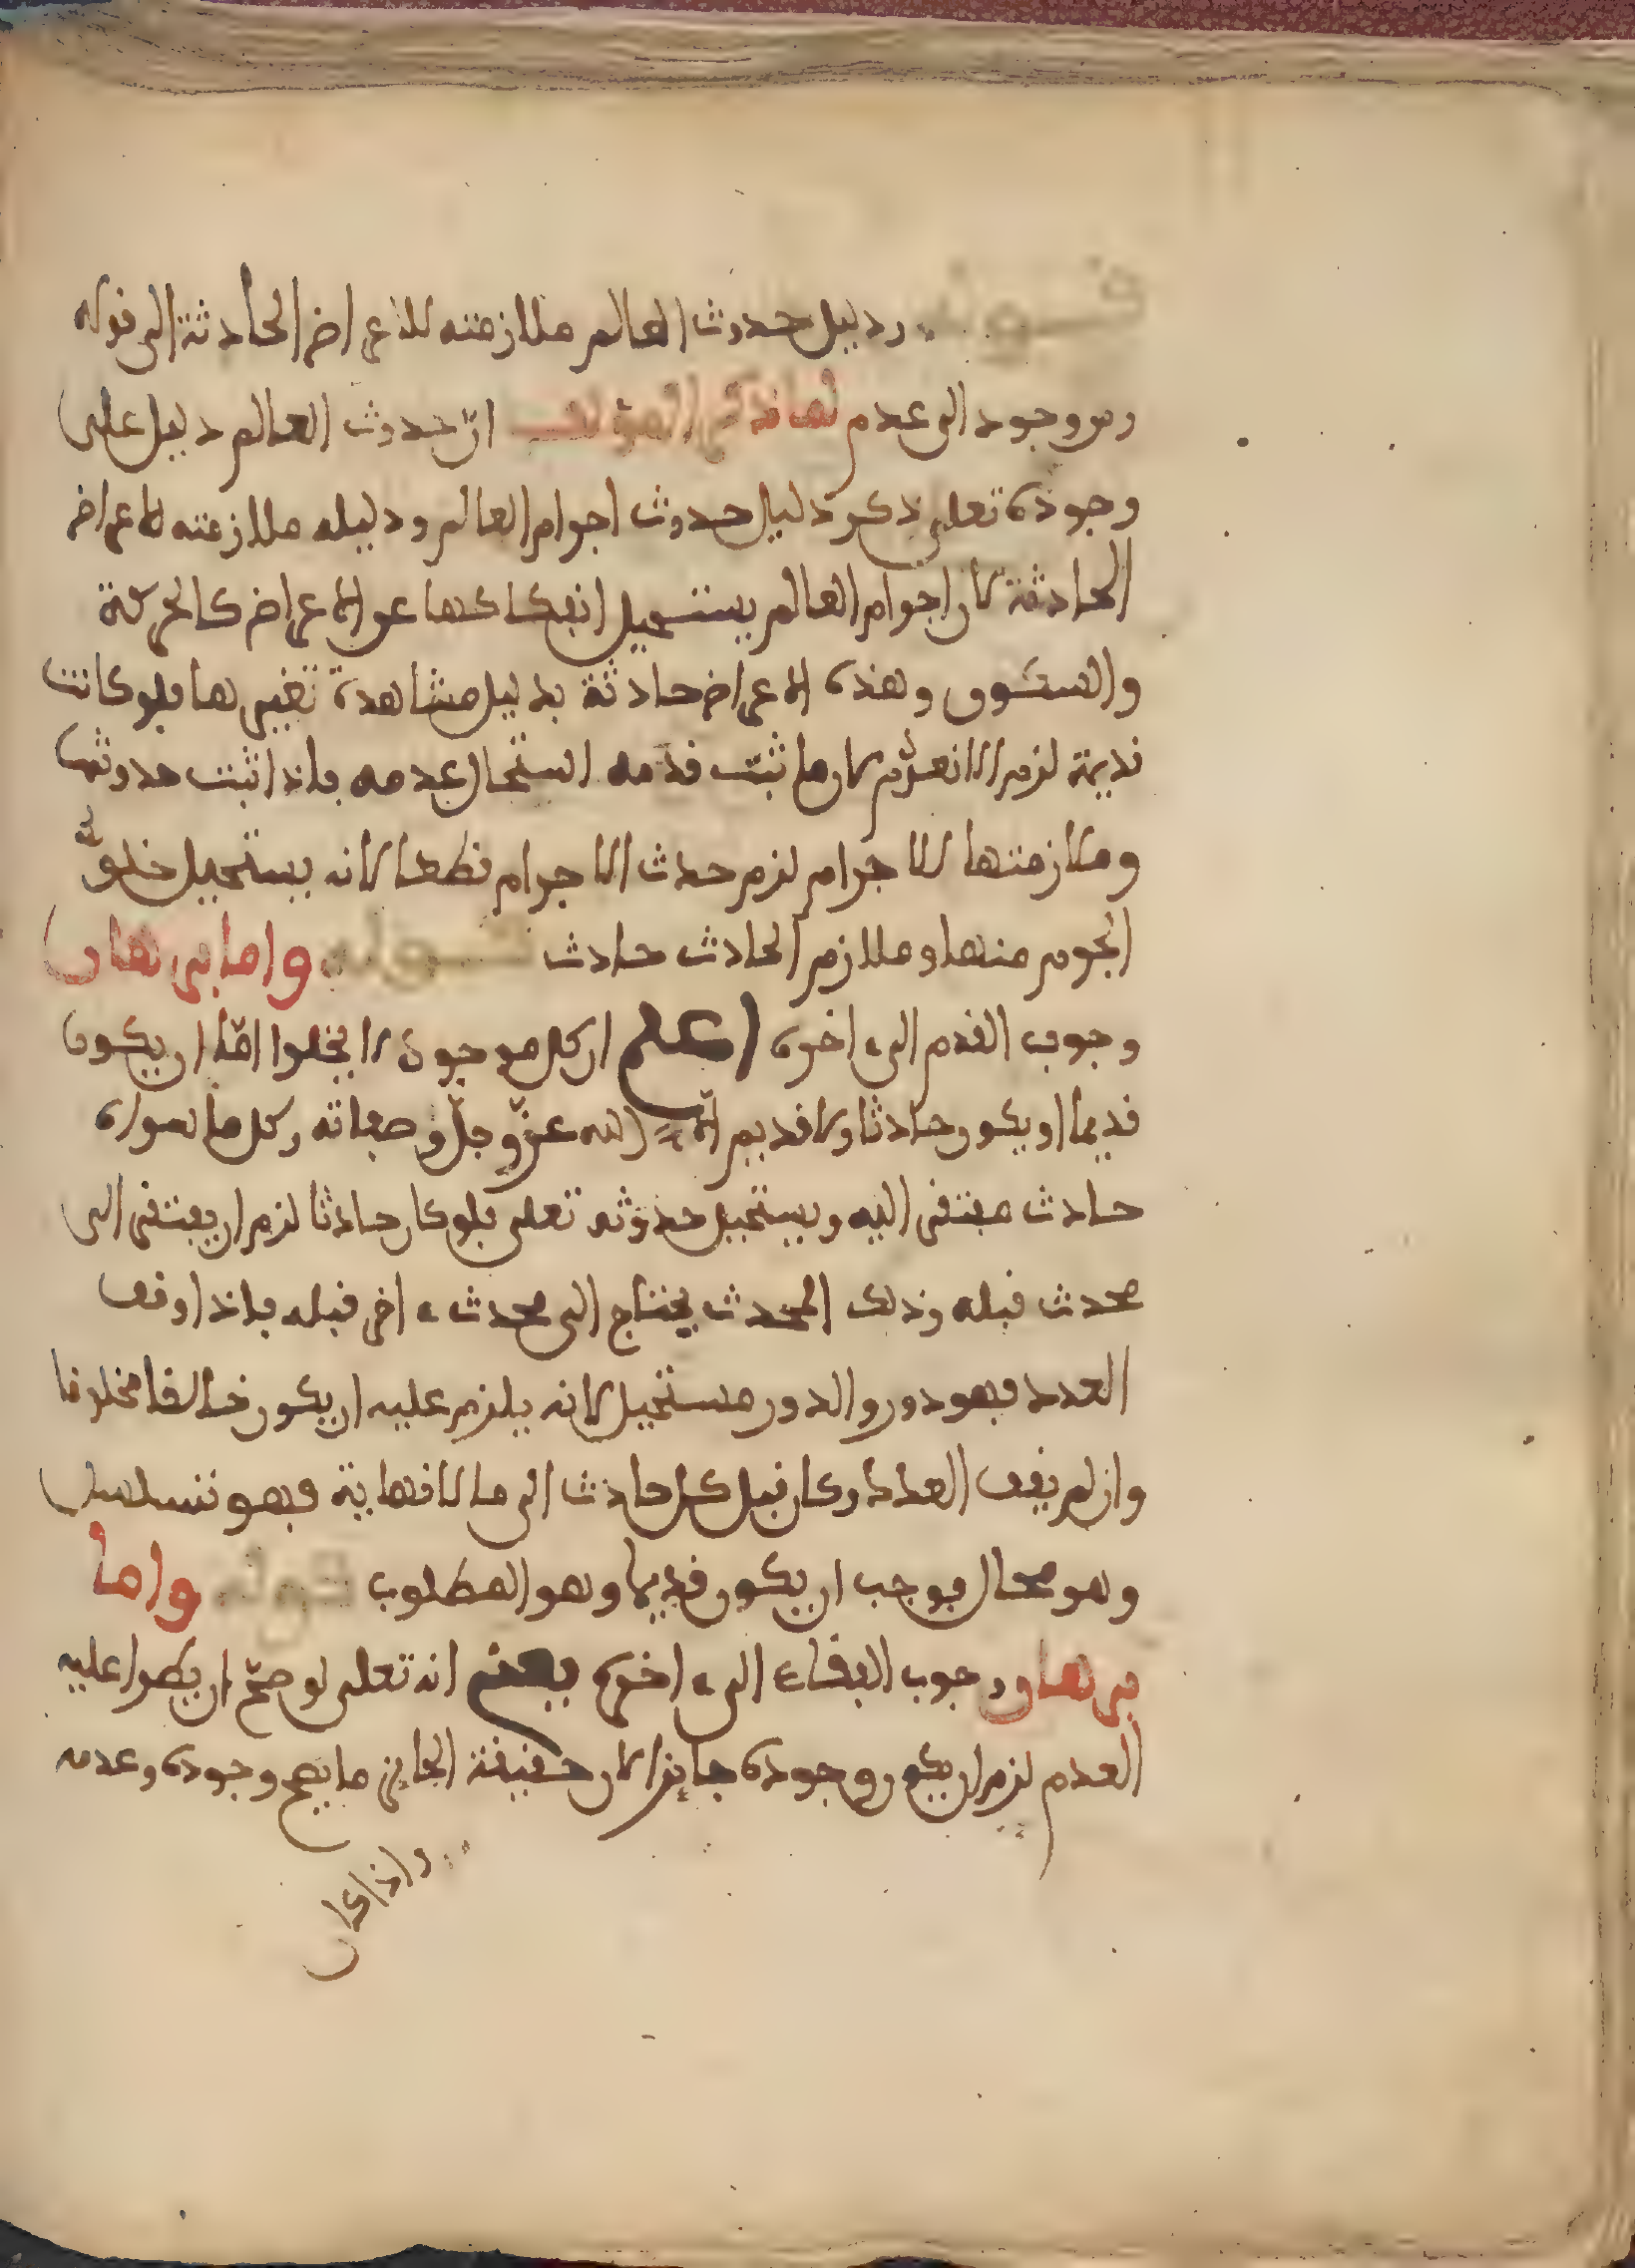 قوله ودليل حدوث العالم ملازمته للاعراض الحادثة الى قوله
ومن وجود الى عدم لما ذكر المؤلف ان حدوث العالم دليل على
وجوده تعلى ذكر دليل حدوث اجرام العالم ودليله ملازمته للاعراض
الحادثة لان اجرام العالم يستحيل انفكاكها عن الاعراض كالحركة
والسكون وهذه الاعراض حادثة بدليل مشاهدة تغييرها فلو كانت
قديمة لزم الا تنعدم لان ما ثبت قدمه استحال عدمه فاذا ثبت حدوثها
وملازمتها للاجرام لزم حدث الاجرام قطعا لانه يستحيل خلو
الجرم منها وملازم الحادث حادث قوله واما برهان
وجوب القدم الى اخره اعلم ان كل موجود لا يخلوا اما ان يكون
قديما او يكون حادثا ولا قديم الا الله عز وجل وصفاته وكل ما سواه
حادث مفتقر اليه ويستحيل حدوثه تعلى فلو كان حادثا لزم ان يفتقر الى
محدث قبله وذلك المحدث يحتاج الى محدث اخر قبله فاذا وقف
العدد فهو دور والدور مستحيل لانه يلزم عليه ان يكون خالقا مخلوقا
وان لم يقف العدد وكان قبل كل حادث الى ما لا نهاية فهو تسلسل
وهو محال فوجب ان يكون قديما وهو المطلوب قوله واما
برهان وجوب البقاء الى اخره يعني انه تعلى لو صح ان يطرا عليه
العدم لزم ان يكون وجوده جايزا لان حقيقة الجايز ما يصح وجوده وعدمه
واذا كان